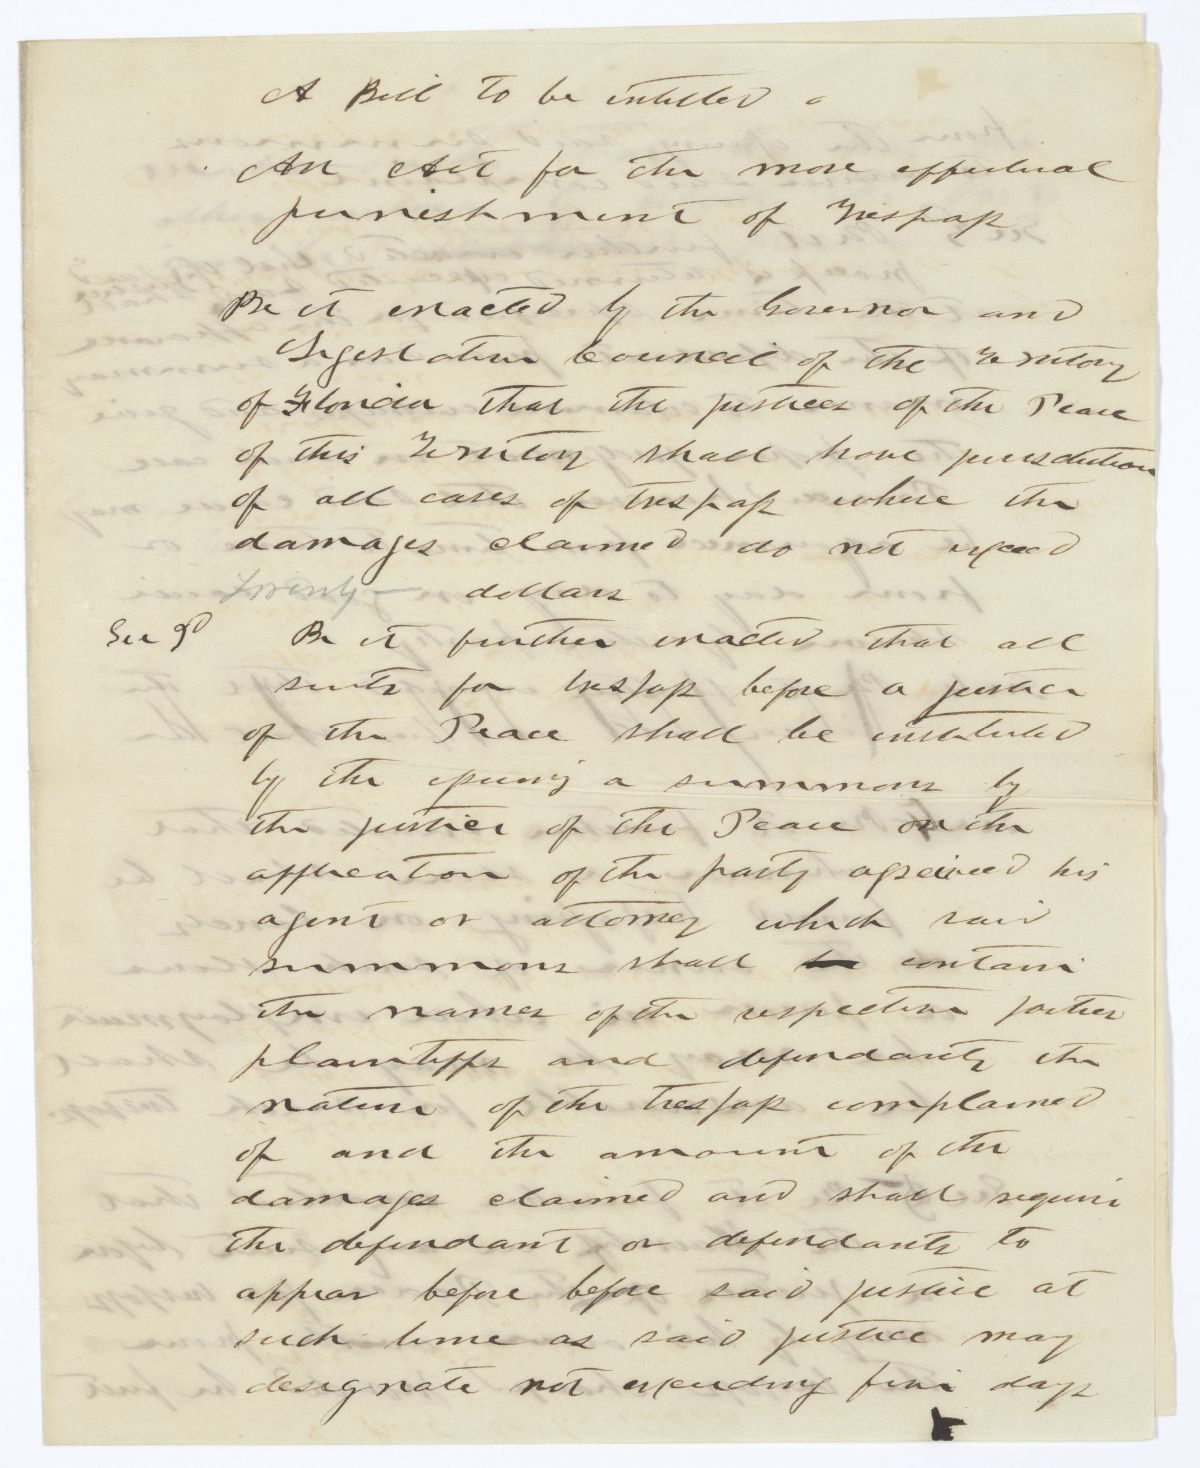 A Bill to be intitled
An Act for the more effectual
punishment of Trespass
Be it enacted by the Governor and
Legislative Council of the Territory
of Florida that the justices of the Peace
of this Territory shall have jurisdiction
of all cases of trespass where the
damages claimed do not exceed
Twenty — dollars
Sec 2d Be it further enacted that all
suits for trespass before a justice
of the Peace shall be instituted
by the issuing a summons by
the justice of the Peace on the
application of the party agreived his
agent or attorney which said
summons shall be contain
the names of the respective parties
plaintiffs and defendants the
nature of the trespass complained
of and the amount of the
damages claimed and shall require
the defendant or defendants to
appear before before said justice at
such time as said justice may
designate not exceeding five days